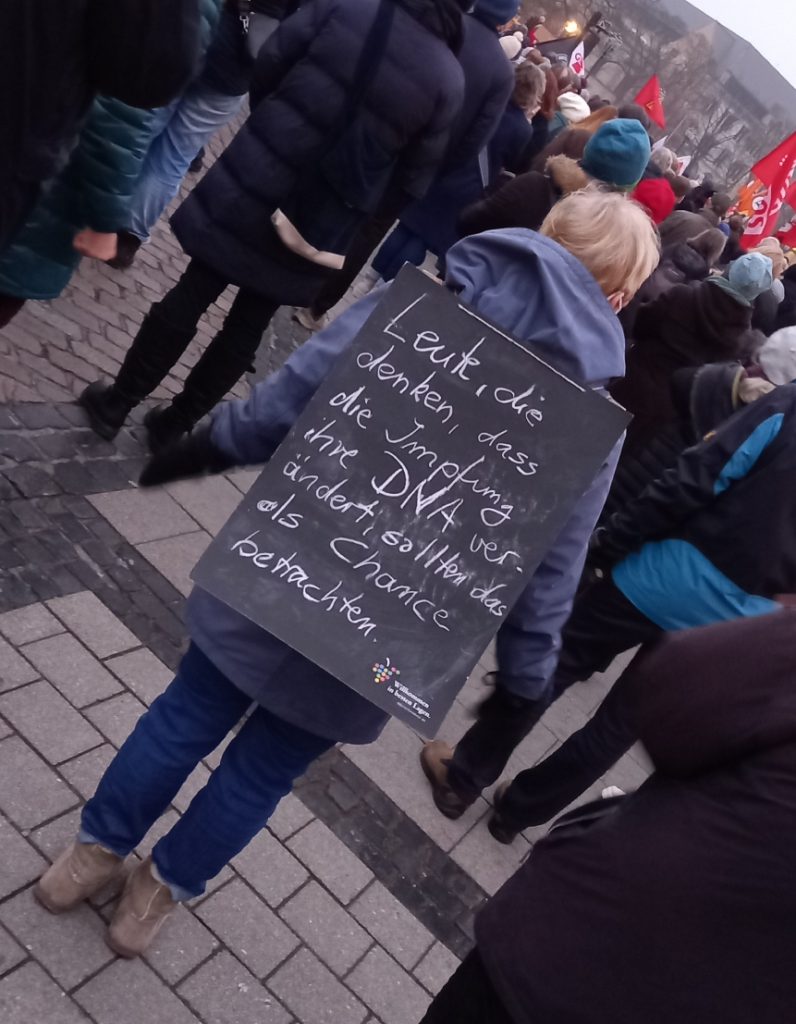 Leute, die
denken, dass
die Impfung
ihre DNA ver-
ändert, sollten das
als Chance
betrachten.
Willkommen
in besten Lagen.